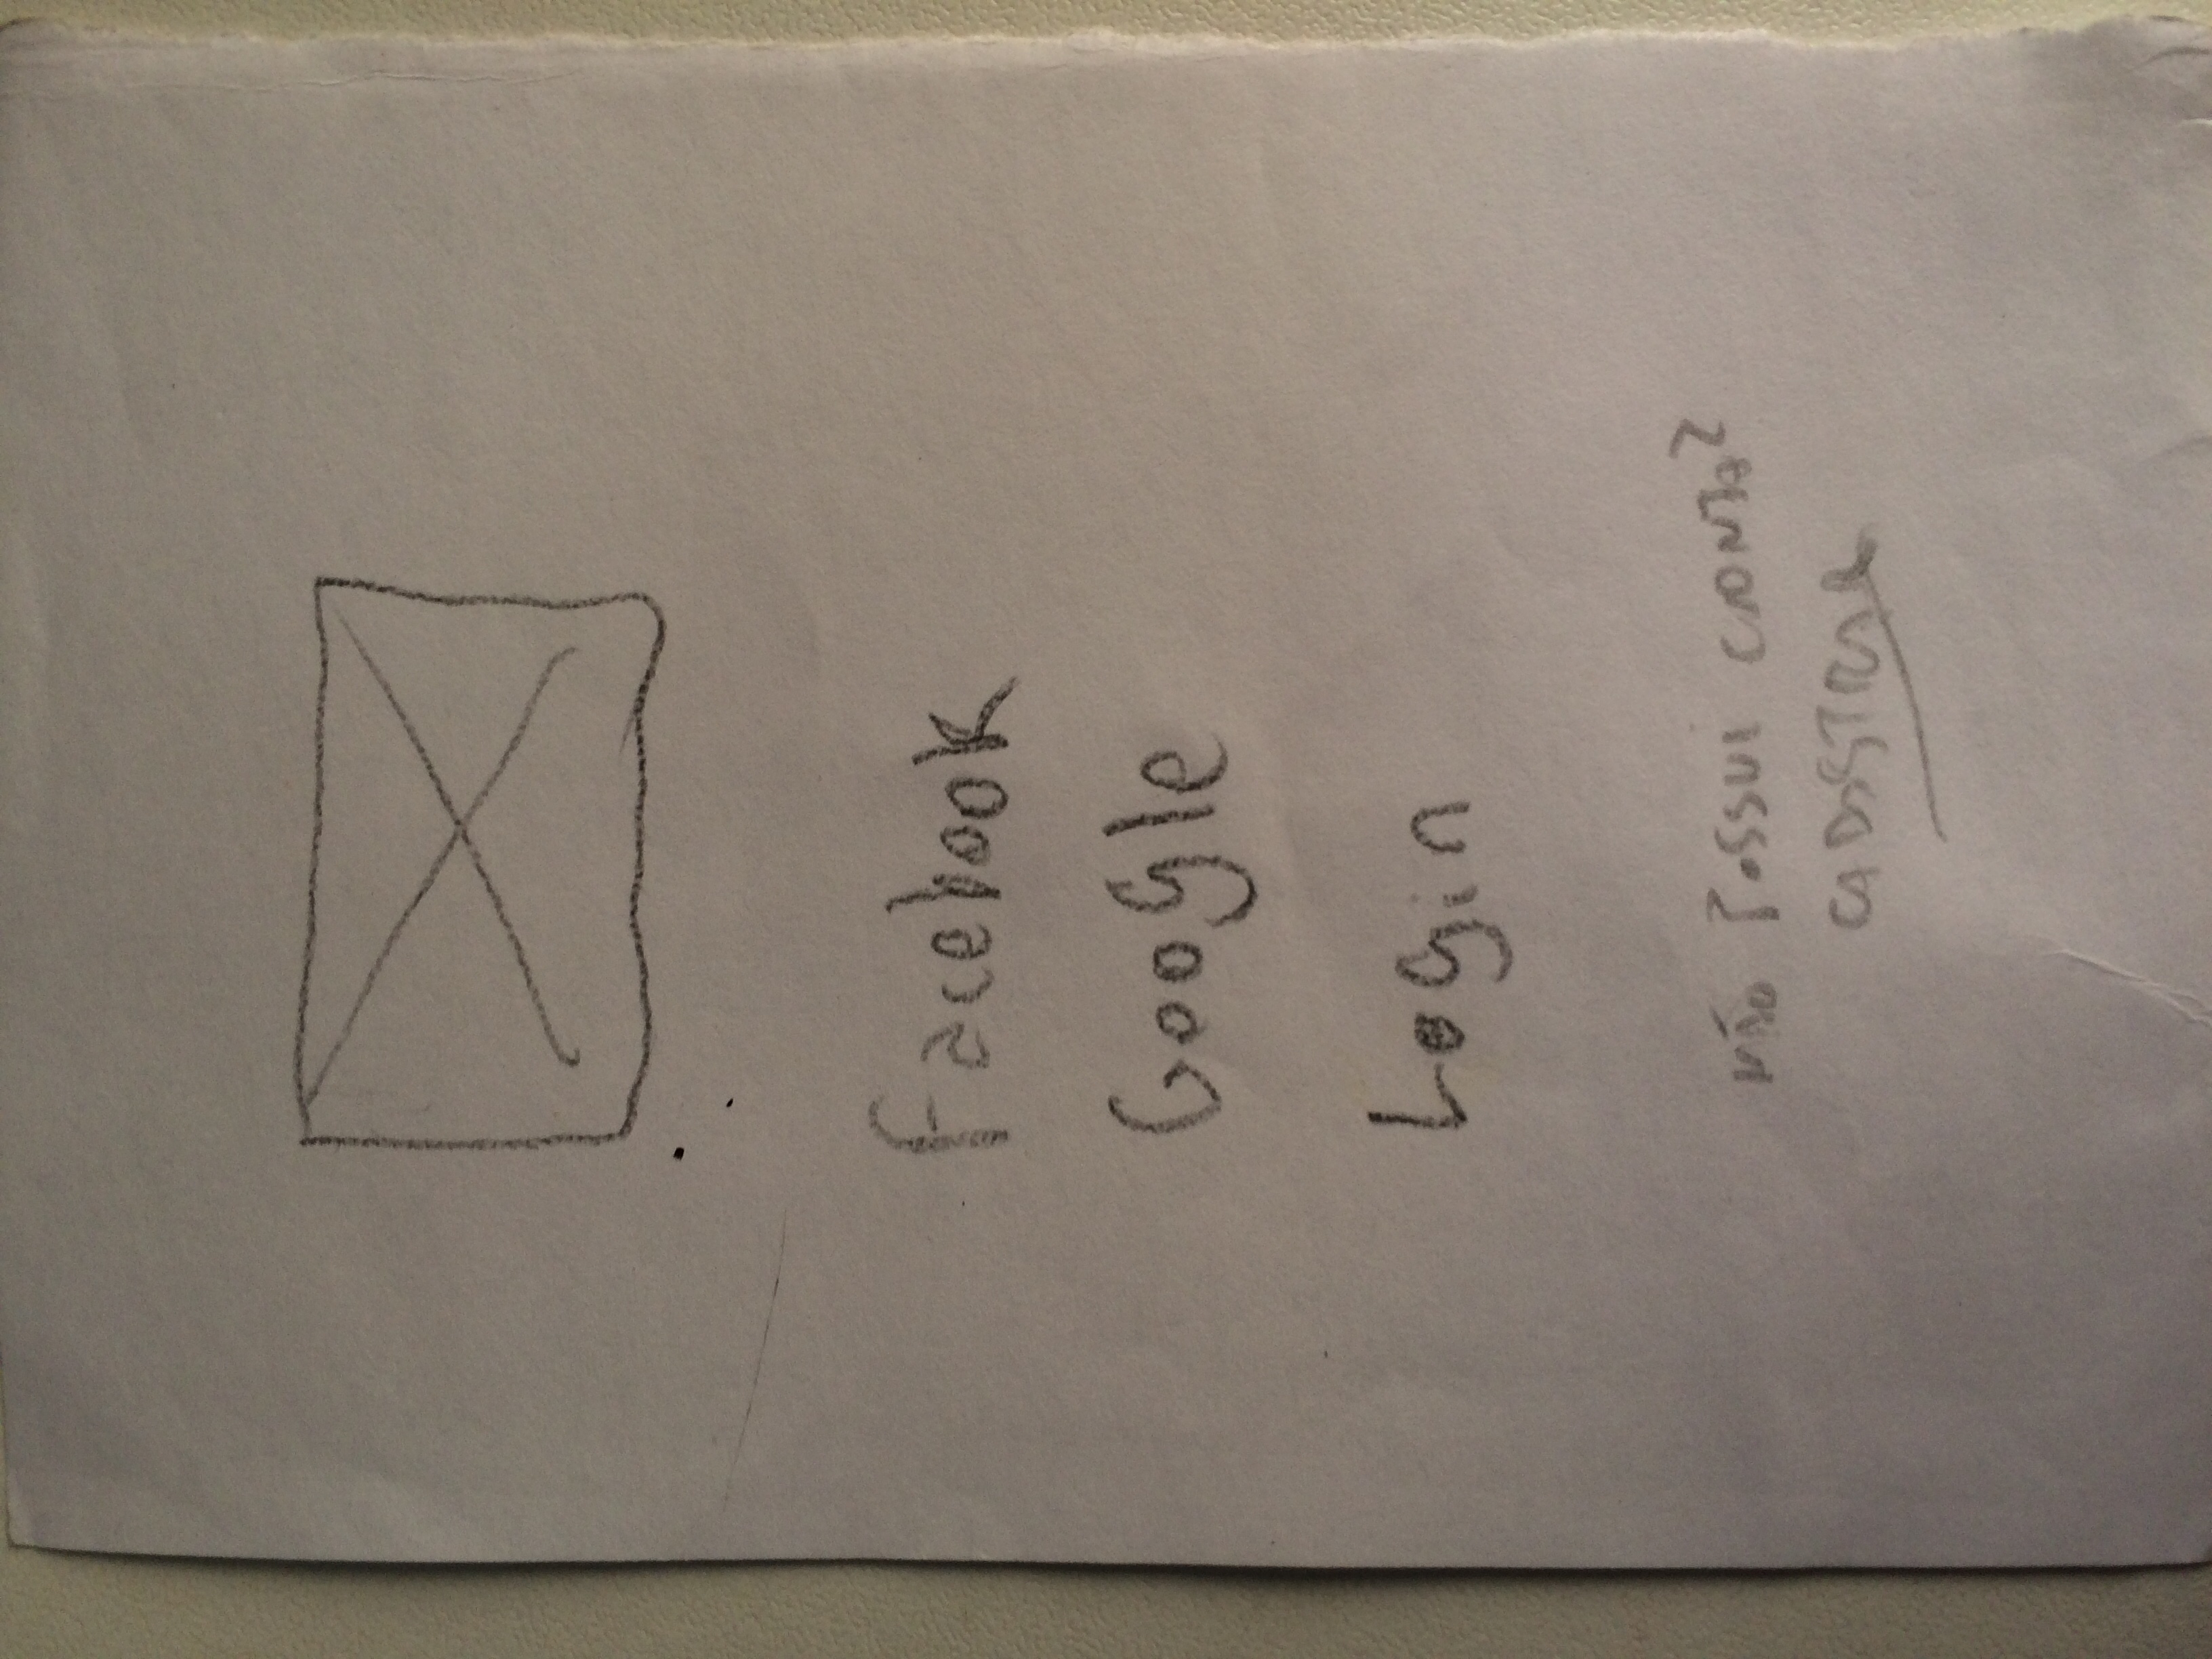 Facebook
Google
Login
NÃO POSSUI CONTA?
CADASTRAR